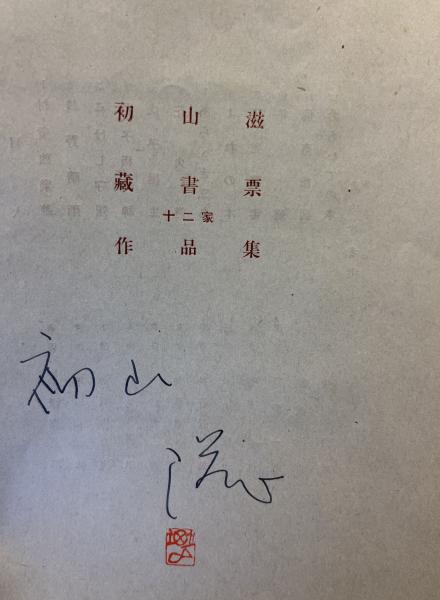 初山滋
藏書票
十二家
作品集
初山
滋